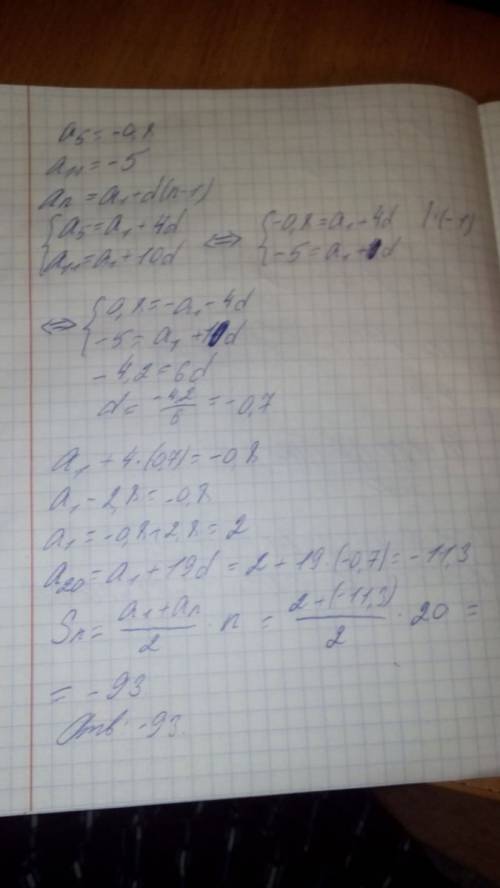 a₅ = -0,8
a₁₁ = -5
aₙ = a₁ + d(n-1)
{ a₅ = a₁ + 4d ⇔ { -0,8 = a₁ + 4d |·(-1)
{ a₁₁ = a₁ + 10d { -5 = a₁ + 10d
⇔ { 0,8 = -a₁ - 4d
{ -5 = a₁ + 10d
-4,2 = 6d
d = -4,2/6 = -0,7
a₁ + 4·(0,7) = -0,8
a₁ - 2,8 = -0,8
a₁ = -0,8 + 2,8 = 2
a₂₀ = a₁ + 19d = 2 + 19·(-0,7) = -11,3
Sₙ = (a₁ + aₙ)/2 · n = (2 + (-11,3))/2 · 20 =
= -93
Отв: -93.